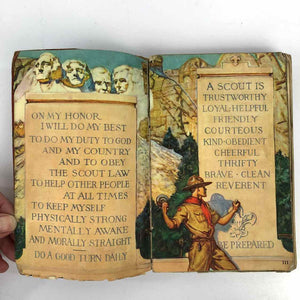 ON MY HONOR
I WILL DO MY BEST
TO DO MY DUTY TO GOD
AND MY COUNTRY
AND TO OBEY
THE SCOUT LAW
TO HELP OTHER PEOPLE
AT ALL TIMES
TO KEEP MYSELF
PHYSICALLY STRONG
MENTALLY AWAKE
AND MORALLY STRAIGHT
DO A GOOD TURN DAILY
A SCOUT IS
TRUSTWORTHY
LOYAL·HELPFUL
FRIENDLY
COURTEOUS
KIND·OBEDIENT
CHEERFUL
THRIFTY
BRAVE·CLEAN
REVERENT
BE PREPARED
III